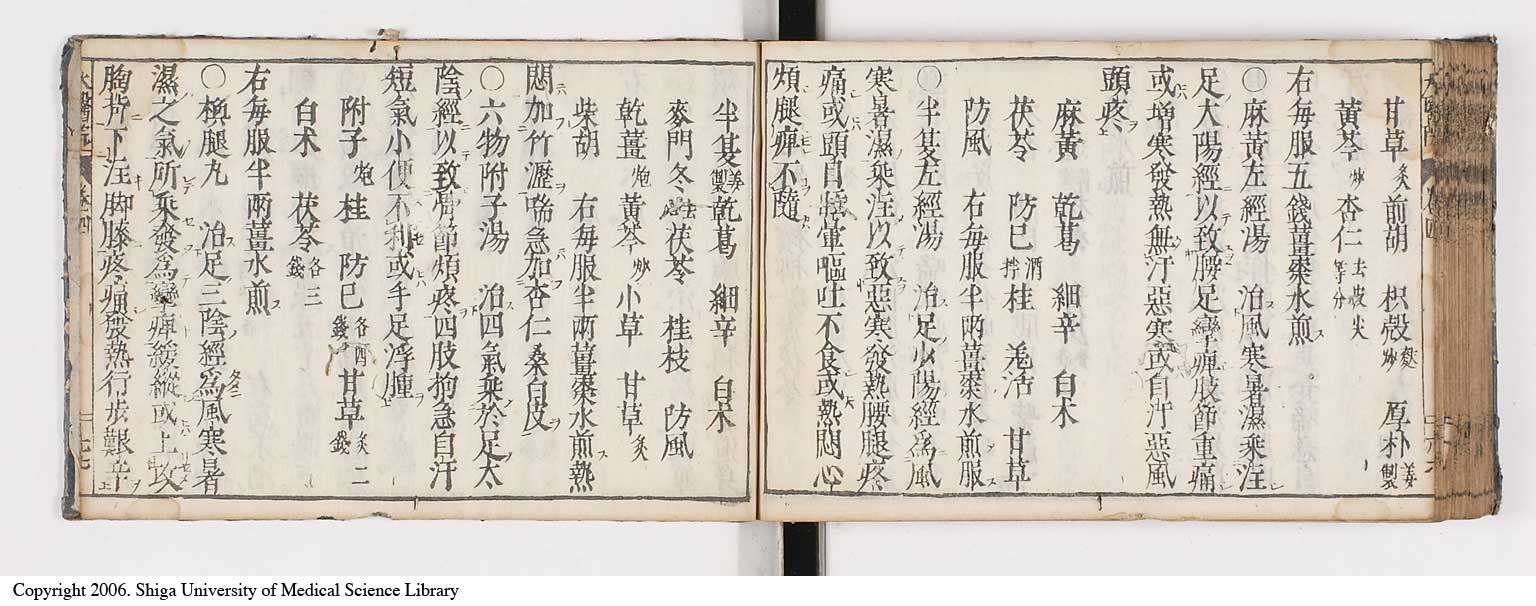 甘草炙 前胡 枳殼麩炒 厚朴姜製
黃芩炒 杏仁去皮尖等分
右每服五錢薑棗水煎ス
〇麻黃左經湯 治風寒暑濕乗注
足大陽經以致腰足攣痺肢節重痛
或増寒發熱無汗惡寒或自汗惡風
頭疼ヲ
麻黃 乾葛 細辛 白术
茯苓 防已酒拧 桂 羗活 甘草
防風 右每服半兩薑棗水煎服ス
〇半夏左經湯 治足少陽經爲風
寒暑濕乗注以致惡寒發熱腰腿疼
痛或頭目眩暈嘔吐不食或熱悶心
煩腿痺不隨
半夏姜製 乾葛 細辛 白术
麥門冬去心 茯苓 桂枝 防風
乾薑炮 黃芩炒 小草 甘草炙
柴胡 右每服半兩薑棗水煎熱
悶加竹瀝喘急加杏仁桑白皮
〇六物附子湯 治四氣乗於足太
陰經以致骨節煩疼四肢拘急自汗
短氣小便不利或手足浮腫
附子炮 桂 防已各四錢 甘草炙二錢
白术 茯苓各三錢
右每服半兩薑水煎ス
〇換腿丸 治足三陰經爲風寒暑
濕之氣所乗發爲攣痺緩縱或上攻
胸背下注脚膝疼痛發熱行步艱辛
卷四
Copyright 2006. Shiga University of Medical Science Library